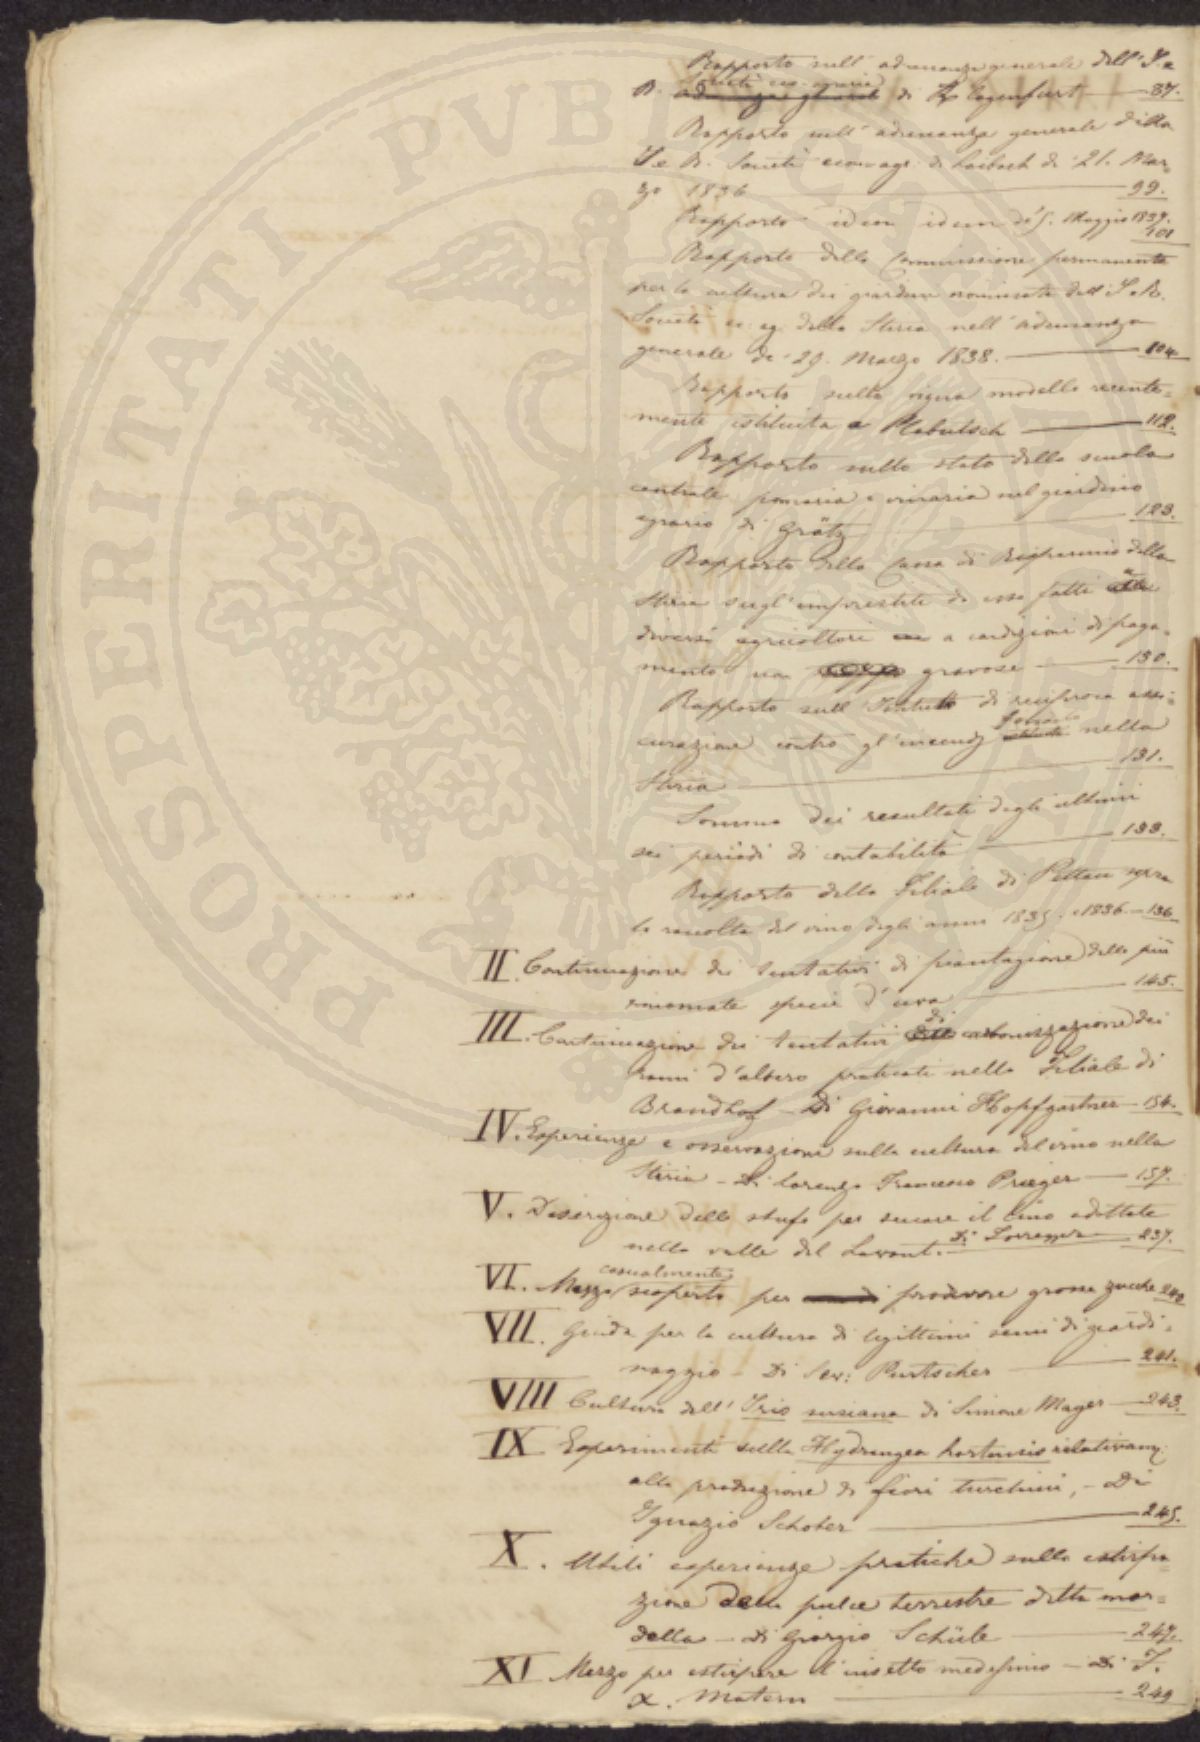 Rapporto sull' adunanza generale dell' I. e
Società eco. agraria
R. di Klagenfurt — 87.
Rapporto sull' adunanza generale della
I. e R. Società econ. agr. di Laibach di 21. Mar-
zo 1836 — 99.
Rapporto idem idem di 5. Maggio 1837.
101
Rapporto della Commissione permanente
per la cultura dei giardini nominata dell' I. R.
Società ec. ag. della Stiria nell' adunanza
generale di 29. Marzo 1838. — 104
Rapporto sulla vigna modello recente=
mente istituita a Plabutsch — 112.
Rapporto sullo stato della scuola
centrale pomaria e vinaria nel giardino
agrario di Grätz — 123.
Rapporto della Cassa di Risparmio della
Stiria sugl' imprestiti da essa fatti a
diversi agricoltori a condizioni di paga-
mento non gravose — 130.
Rapporto sull' Istituto di reciproca assi-
curazione contro gl' incendj fondato nella
Stiria — 131.
Somma dei resultati degli ultimi
sei periodi di contabilità — 133.
Rapporto della Filiale di Pettau sopra
la raccolta del vino degli anni 1835. e 1836 — 136
II. Continuazione dei tentativi di piantagione delle più
rinomate specie d'uva — 145.
III. Continuazione dei tentativi di carbonizzazione dei
rami d'albero praticati nella Filiale di
Brandhof — Di Giovanni Hopfgartner — 154.
IV. Esperienze e osservazioni sulla cultura del vino nella
Stiria — Di Lorenzo Francesco Prieger — 157.
V. Descrizione della stufa per seccare il lino adottata
nella valle del Lavant. — Di — 237.
VI. Mezzo casualmente scoperto per produrre grosse zucche 240
VII. Guida per la cultura di legittimi semi di giardi-
naggio — Di Sev: Purtscher — 241.
VIII Cultura dell' Iris susiana di Simone Mayer — 243.
IX Esperimenti sulla Hydrangea hortensis relativam.
alla produzione di fiori turchini, — Di
Ignazio Schober — 245.
X. Utili esperienze pratiche sulla estirpa-
zione della pulce terrestre detta mor=
della — di Giorgio Schüle — 247.
XI Mezzo per estirpare l'insetto medesimo — Di F.
X. Matern — 249
PROSPERITATI PVBLICAE